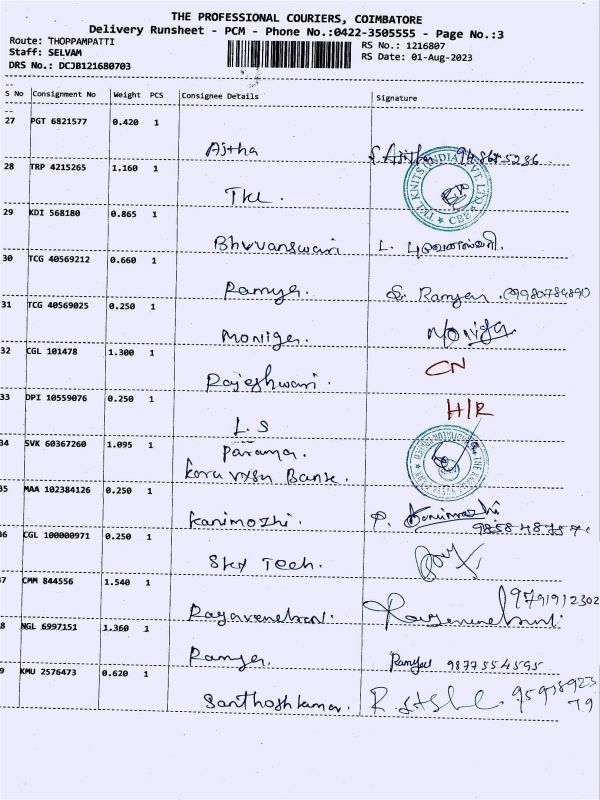 THE PROFESSIONAL COURIERS, COIMBATORE
Delivery Runsheet - PCM - Phone No.:0422-3505555 - Page No.:3
Route: THOPPAMPATTI
Staff: SELVAM
DRS No.: DCJB121680703
RS No.: 1216807
RS Date: 01-Aug-2023
S No Consignment No Weight PCS Consignee Details Signature
27 PGT 6821577 0.420 1 Ajtha
28 TRP 4215265 1.160 1 TKL. TKL KNITS (INDIA) PVT. LTD. CBE
29 KDI 568180 0.865 1 Bhuvanswari L. புவனேஸ்வரி.
30 TCG 40569212 0.660 1 Ramya. S. Ramya
31 TCG 40569025 0.250 1 Moniga. Moniga
32 CGL 101478 1.300 1 Rajeshwari. CN
33 DPI 10559076 0.250 1 L.S H/R
34 SVK 60367260 1.095 1 Parama.
Karur Vysya Bank.
35 MAA 102384126 0.250 1 Kanimozhi. P. Kanimozhi
36 CGL 100000971 0.250 1 Tech.
37 CMM 844556 1.540 1 9791912302
38 NGL 6997151 1.360 1 Ramya. Ramya 9877554595
39 KMU 2576473 0.620 1 Santhoshkumar.